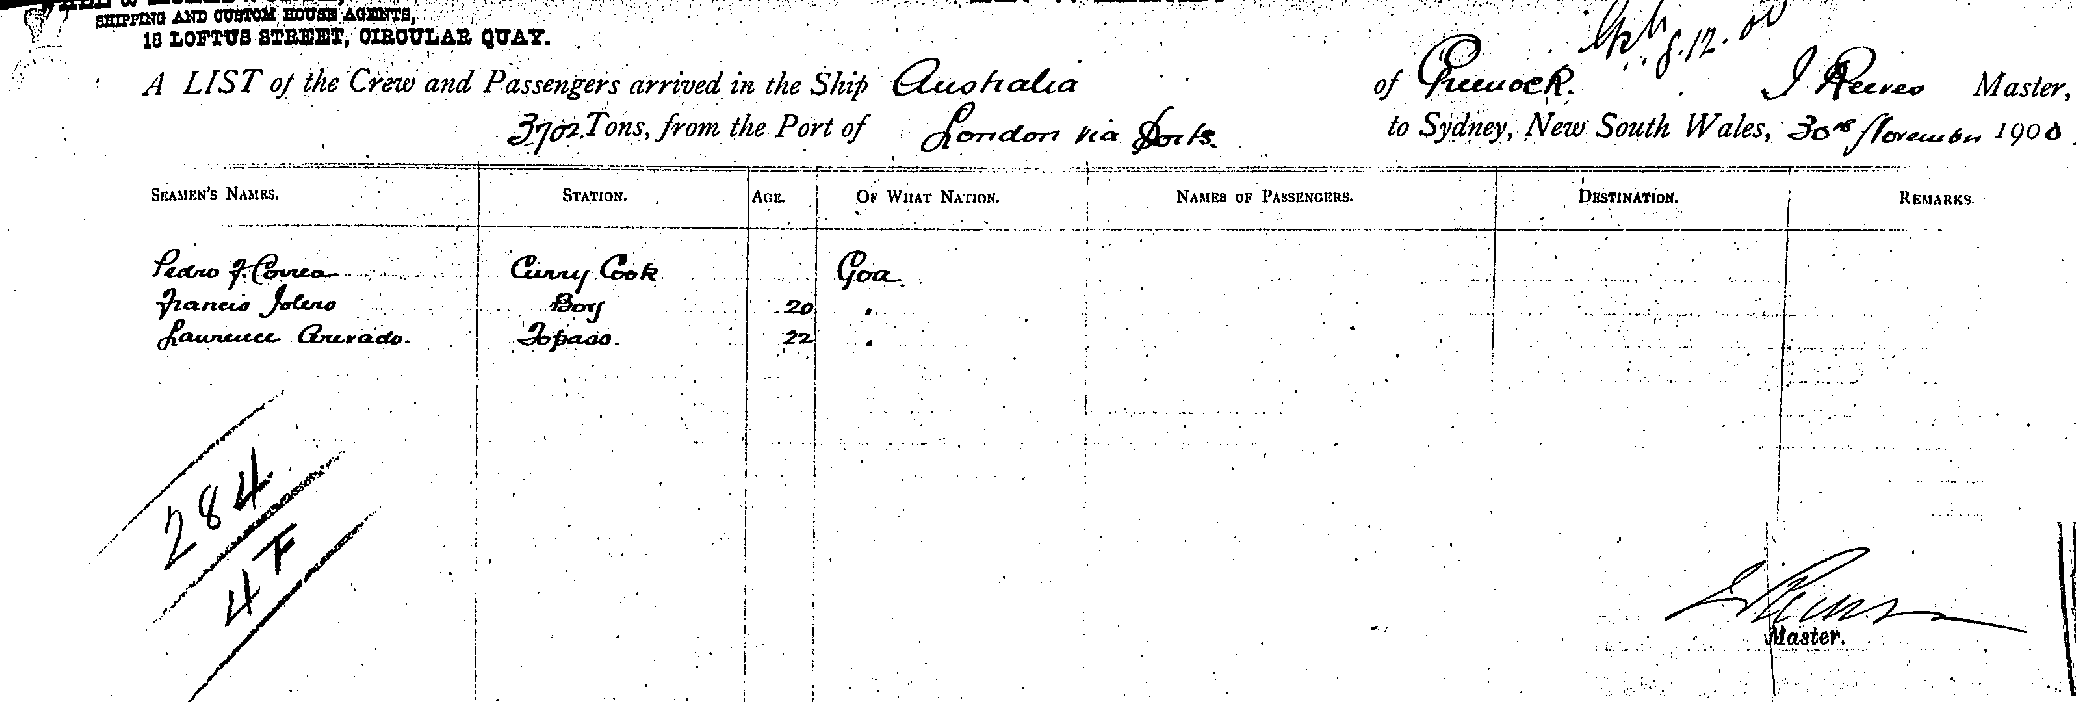 SHIPPING AND CUSTOM HOUSE AGENTS,
18 LOFTUS STREET, CIRCULAR QUAY.
8.12.00
A LIST of the Crew and Passengers arrived in the Ship Australia of Greenock. J Reeves Master,
3702 Tons, from the Port of London via Ports. to Sydney, New South Wales, 30th November 1900.
SEAMEN'S NAMES. STATION. AGE. OF WHAT NATION. NAMES OF PASSENGERS. DESTINATION. REMARKS
Pedro F. Correa Curry Cook Goa.
Francis Boy 20 "
Laurence Topass. 22 "
284
4F
Master.